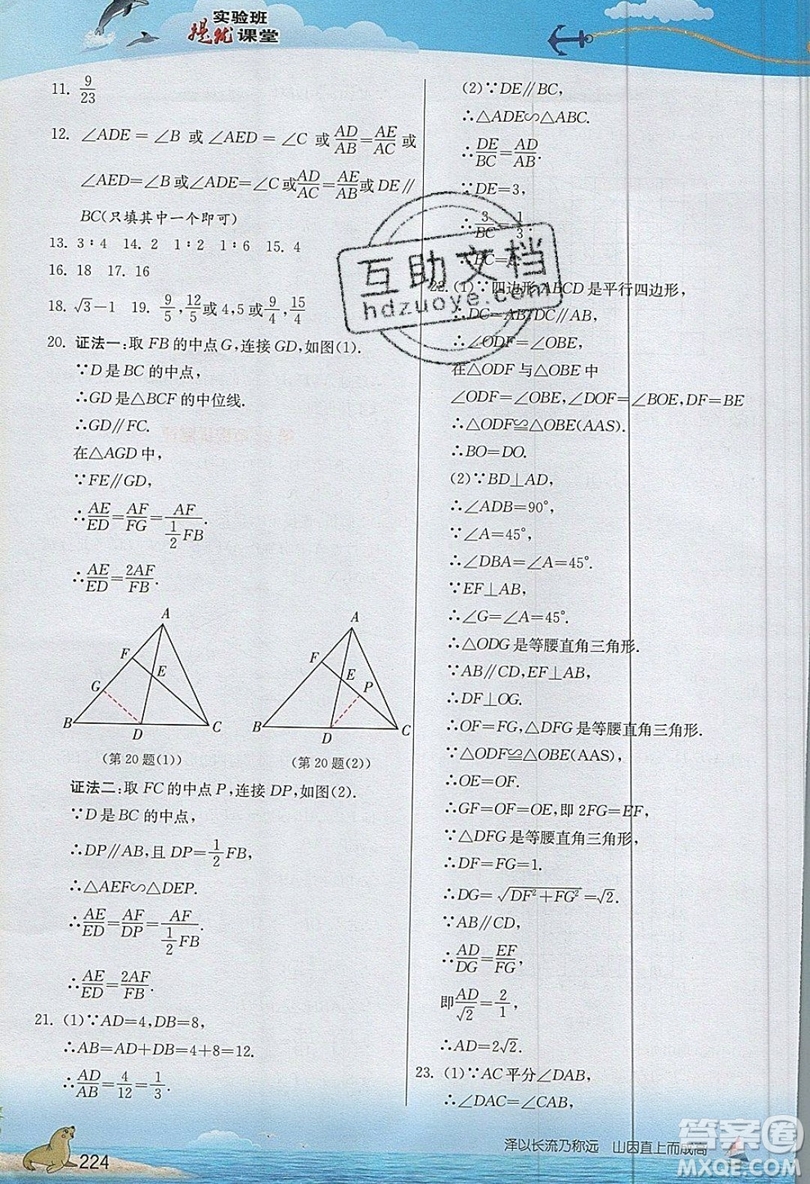 实验班
提优课堂
11. 9/23
12. ∠ADE=∠B 或∠AED=∠C 或AD/AB=AE/AC或
∠AED=∠B 或∠ADE=∠C 或AD/AC=AE/AB或 DE∥
BC(只填其中一个即可)
13. 3∶4 14. 2 1∶2 1∶6 15. 4
16. 18 17. 16
18. √3-1 19. 9/5,12/5或 4,5或9/4,15/4
20. 证法一:取 FB 的中点 G,连接 GD,如图(1).
∵D 是 BC 的中点,
∴GD 是△BCF 的中位线.
∴GD∥FC.
在△AGD 中,
∵FE∥GD,
∴AE/ED=AF/FG=AF/(1/2 FB).
∴AE/ED=2AF/FB.
A
F
E
G
B
D
C
(第 20 题(1))
A
F
E
P
B
D
C
(第 20 题(2))
证法二:取 FC 的中点 P,连接 DP,如图(2).
∵D 是 BC 的中点,
∴DP∥AB,且 DP=1/2 FB,
∴△AEF∽△DEP.
∴AE/ED=AF/DP=AF/(1/2 FB).
∴AE/ED=2AF/FB.
21. (1)∵AD=4,DB=8,
∴AB=AD+DB=4+8=12.
∴AD/AB=4/12=1/3.
(2)∵DE∥BC,
∴△ADE∽△ABC.
∴DE/BC=AD/AB.
∵DE=3,
∴3/BC=1/3.
22. (1)∵四边形 ABCD 是平行四边形,
∴DC=AB,DC∥AB.
∴∠ODF=∠OBE,
在△ODF 与△OBE 中
∠ODF=∠OBE,∠DOF=∠BOE,DF=BE
∴△ODF≌△OBE(AAS).
∴BO=DO.
(2)∵BD⊥AD,
∴∠ADB=90°,
∵∠A=45°,
∴∠DBA=∠A=45°.
∵EF⊥AB,
∴∠G=∠A=45°.
∴△ODG 是等腰直角三角形.
∵AB∥CD,EF⊥AB,
∴DF⊥OG.
∴OF=FG,△DFG 是等腰直角三角形.
∵△ODF≌△OBE(AAS)
∴OE=OF.
∴GF=OF=OE,即 2FG=EF.
∵△DFG 是等腰直角三角形,
∴DF=FG=1.
∴DG=√(DF²+FG²)=√2.
∵AB∥CD,
∴AD/DG=EF/FG,
即AD/√2=2/1,
∴AD=2√2.
23. (1)∵AC 平分∠DAB,
∴∠DAC=∠CAB,
互助文档
hdzuoye.com
泽以长流乃称远 山因直上而成高
224
答案圈
MXQE.COM